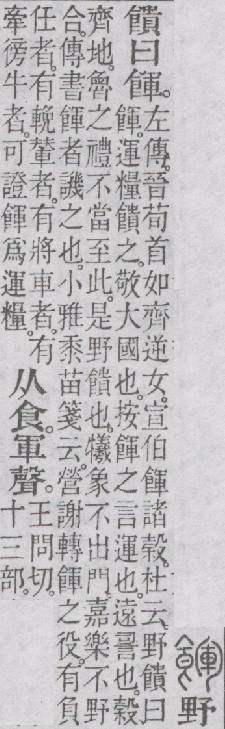 餫 野
饋曰餫。左傳。晉荀首如齊逆女。宣伯餫諸穀。杜云、野饋曰
餫。運糧饋之。敬大國也。按餫之言運也。遠也。穀
齊地。魯之禮不當至此。是野饋也。犧象不出門。嘉樂不野
合。傳書餫者譏之也。小雅黍苗箋云。營謝轉餫之役。有負
任者。有輓輦者。有將車者。有
牽徬牛者。可證餫爲運糧。
从食。軍聲。王問切。
十三部。